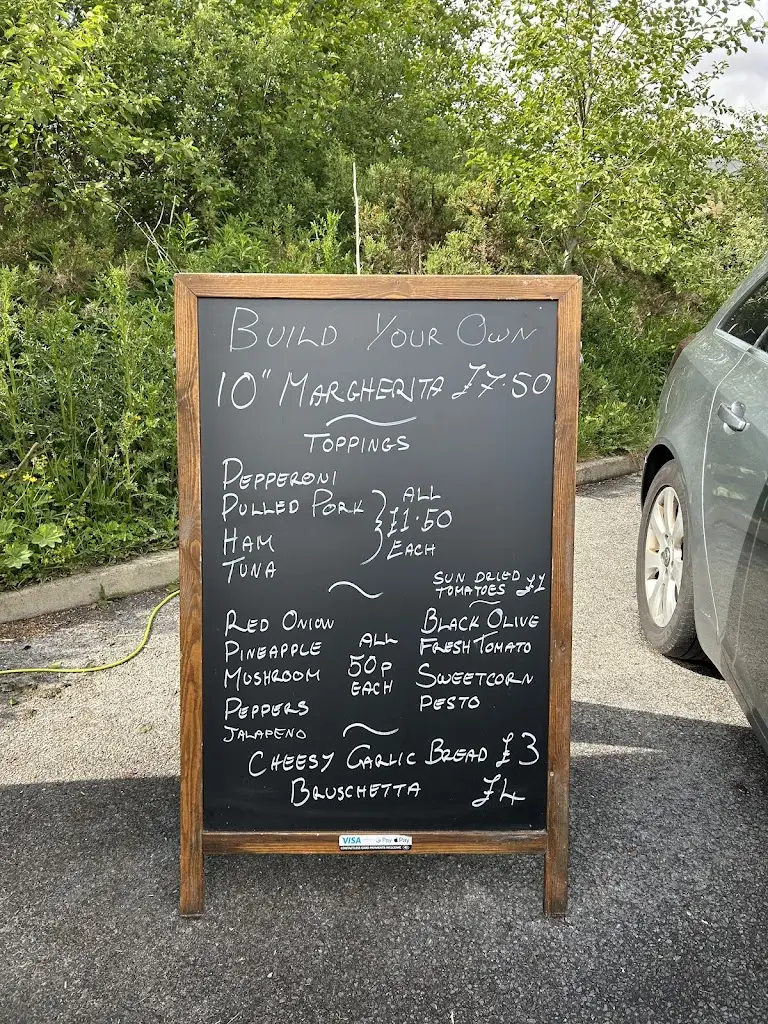 BUILD YOUR OWN
10" MARGHERITA £7.50
TOPPINGS
PEPPERONI
PULLED PORK
HAM
TUNA
ALL
£1.50
EACH
SUN DRIED
TOMATOES £1
RED ONION
PINEAPPLE
MUSHROOM
PEPPERS
JALAPENO
ALL
50P
EACH
BLACK OLIVE
FRESH TOMATO
SWEETCORN
PESTO
CHEESY GARLIC BREAD £3
BRUSCHETTA £4
VISA Pay Pay
CONTACTLESS CARD PAYMENTS WELCOME